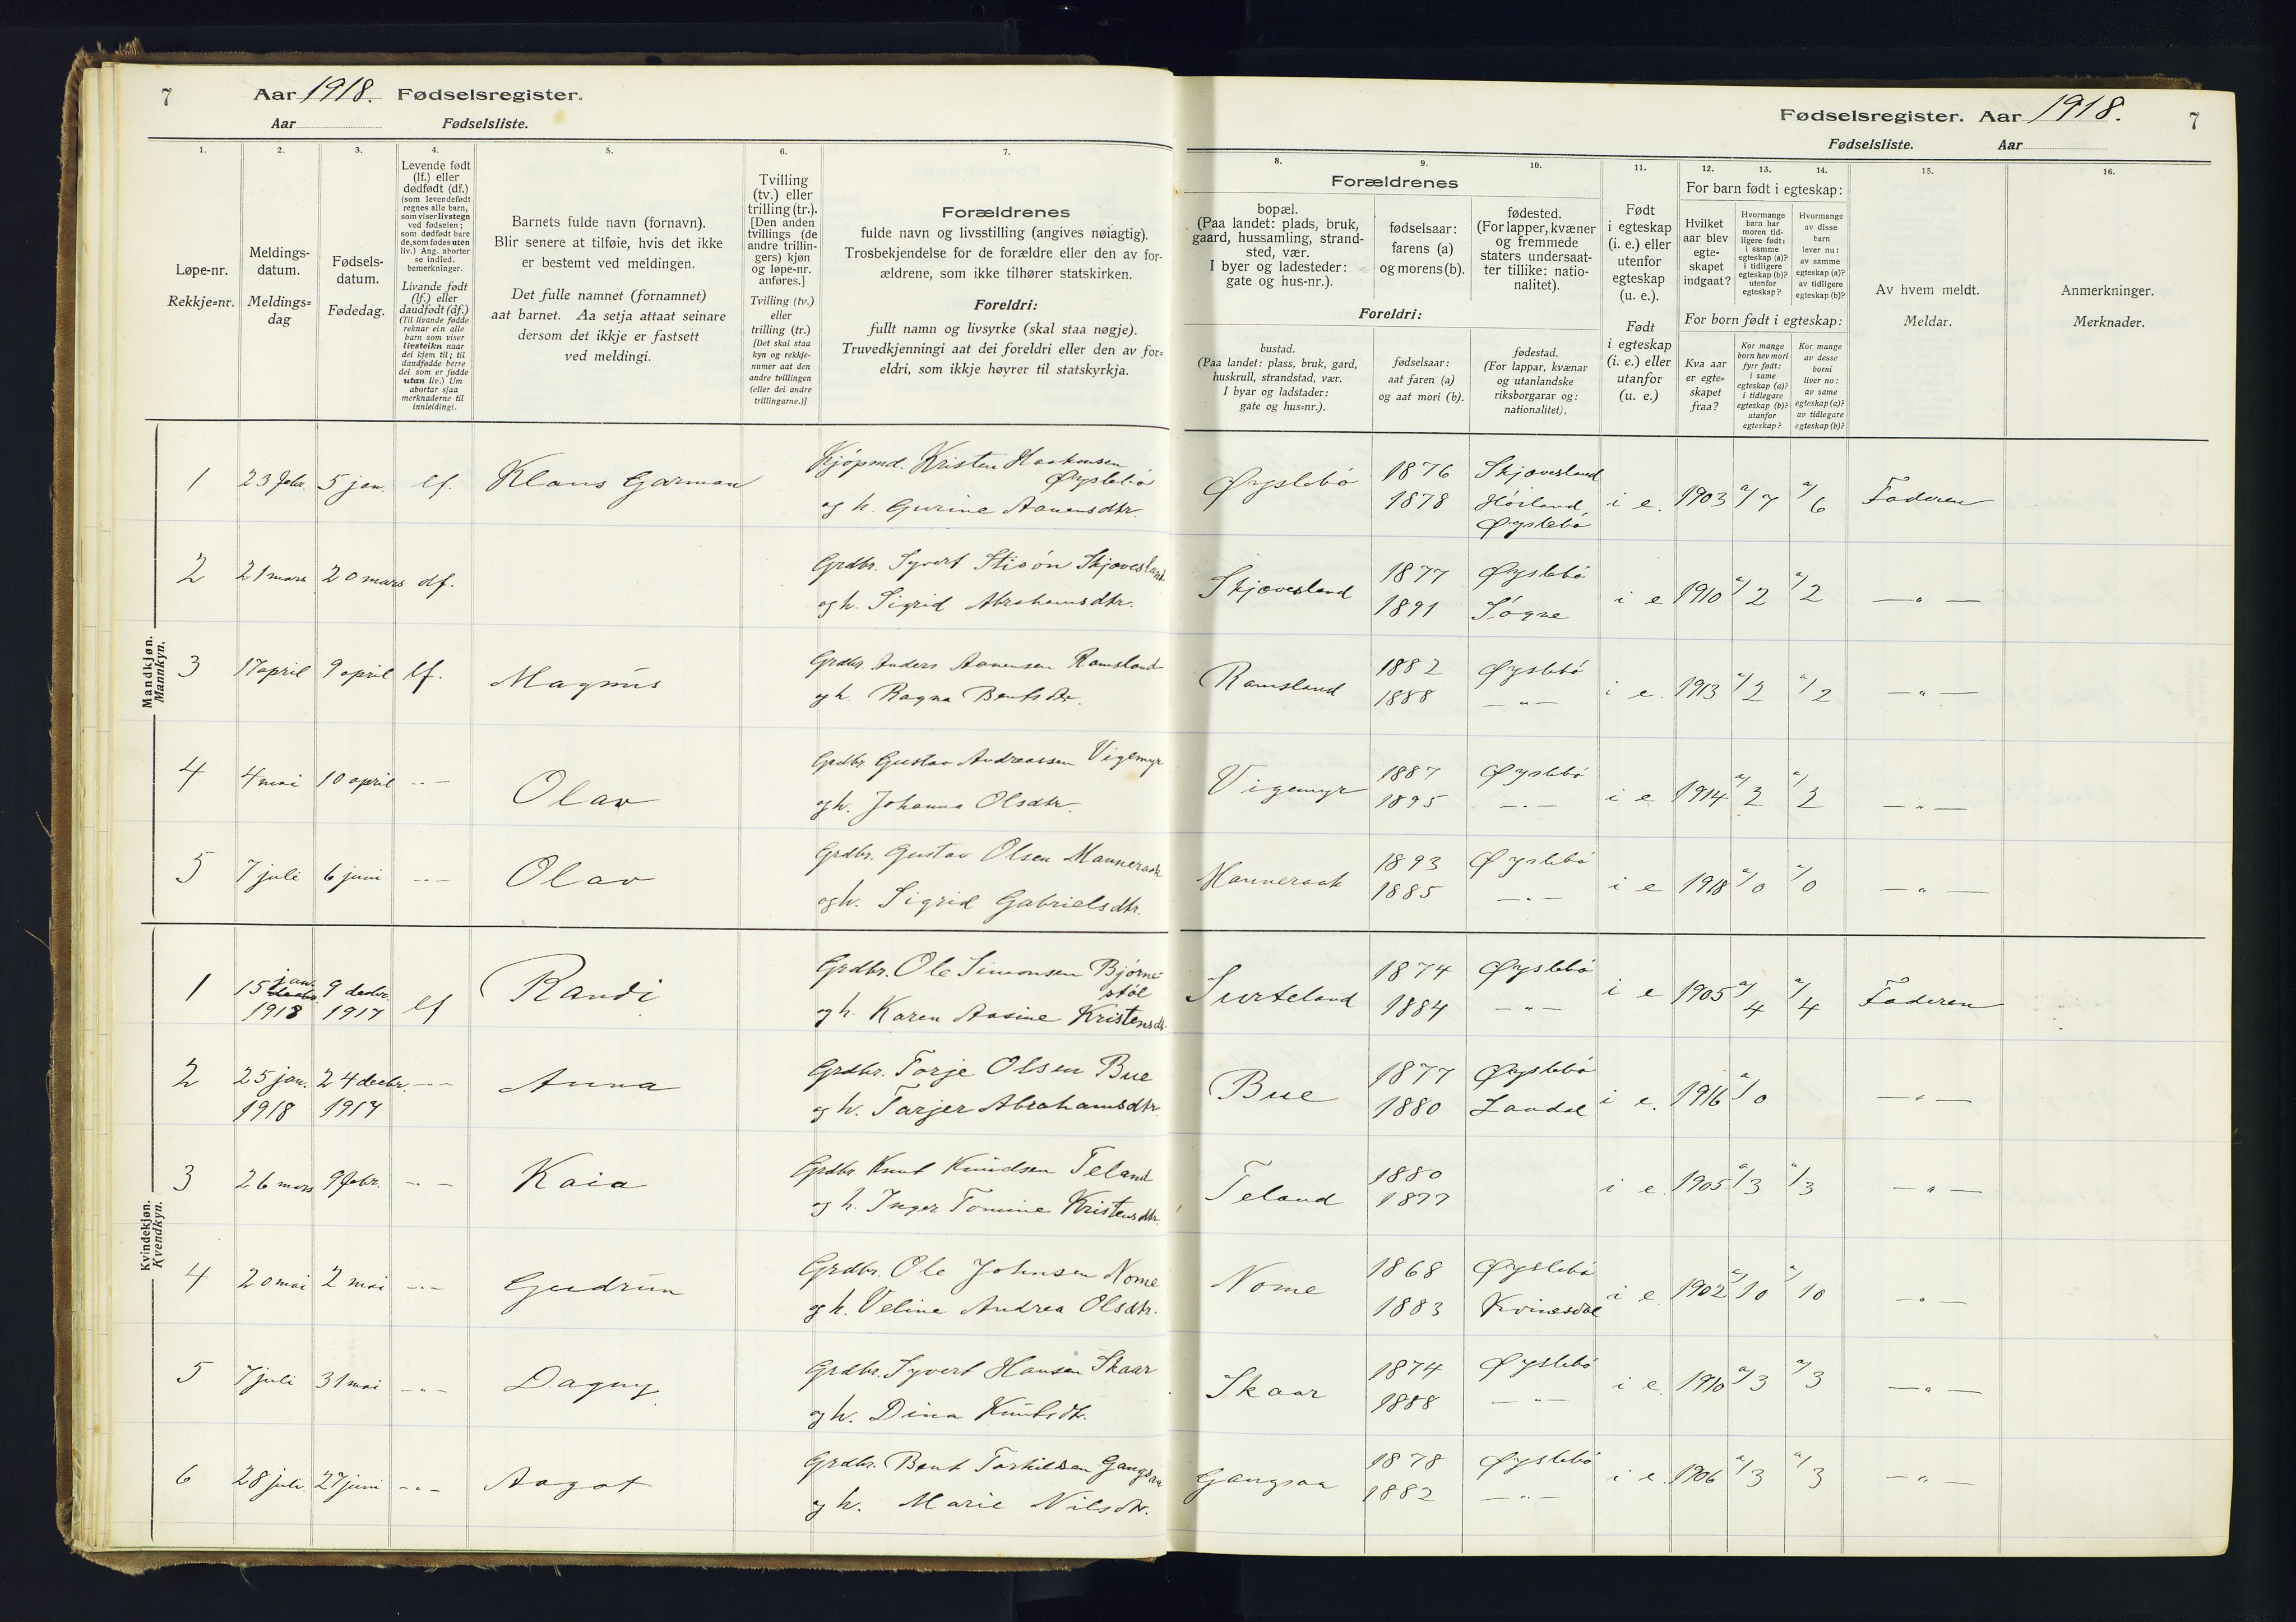 7 Aar 1918. Fødselsregister.
Aar Fødselsliste.
1. 2. 3. 4. 5. 6. 7.
Løpe-nr.
Rekkje=nr.
Meldings-
datum.
Meldings=
dag
Fødsels-
datum.
Fødedag.
Levende født
(lf.) eller
dødfødt (df.)
(som levendefødt
regnes alle barn,
som viser livstegn
ved fødselen;
som dødfødt bare
de, som fødes uten
liv.) Ang. aborter
se indled.
bemerkninger.
Livande født
(lf.) eller
daudfødt (df.)
(Til livande fødde
reknar ein alle
barn som viser
livsteikn naar
dei kjem til; til
daudfødde berre
dei som er fødde
utan liv.) Um
abortar sjaa
merknaderne til
innleidingi.
Barnets fulde navn (fornavn).
Blir senere at tilføie, hvis det ikke
er bestemt ved meldingen.
Det fulle namnet (fornamnet)
aat barnet. Aa setja attaat seinare
dersom det ikkje er fastsett
ved meldingi.
Tvilling
(tv.) eller
trilling (tr.).
[Den anden
tvillings (de
andre trillin-
gers) kjøn
og løpe-nr.
anføres.]
Tvilling (tv.)
eller
trilling (tr.)
[Det skal staa
kyn og rekkje-
numer aat den
andre tvillingen
(eller dei andre
trillingarne.)]
Forældrenes
fulde navn og livsstilling (angives nøiagtig).
Trosbekjendelse for de forældre eller den av for-
ældrene, som ikke tilhører statskirken.
Foreldri:
fullt namn og livsyrke (skal staa nøgje).
Truvedkjenningi aat dei foreldri eller den av for=
eldri, som ikkje høyrer til statskyrkja.
Mandkjøn.
Mannkyn.
1 23 febr. 5 jan. lf. Klaus Garman Kjøpmd. Kristen Haakensen
Øyslebö
og h. Gurine Aanensdtr.
2 21 mars 20 mars df. Grdbr. Syvert Stisön Skjævesland
og h. Sigrid Abrahamsdtr.
3 17 april 9 april lf. Magnus Grdbr. Anders Aanensen Ramsland
og h. Ragna Bentsdtr.
4 4 mai 10 april -"- Olav Grdbr. Gustav Andreassen Vigemyr
og h. Johanna Olsdtr.
5 7 juli 6 juni -"- Olav Grdbr. Gustav Olsen Manneraak
og h. Sigrid Gabrielsdtr.
Kvindekjøn.
Kvendkyn.
1 15 jan. 1918 9 decbr. 1917 lf Randi Grdbr. Ole Simonsen Bjørne-
støl
og h. Karen Aasine Kristensdt.
2 25 jan. 1918 24 decbr. 1917 -"- Anna Grdbr. Torje Olsen Bue
og h. Tarjer Abrahamsdtr.
3 26 mars 9 febr. -"- Kaia Grdbr. Knut Knudsen Teland
og h. Inger Tomine Kristensdtr.
4 20 mai 2 mai -"- Gudrun Grdbr. Ole Johnsen Nome
og h. Veline Andrea Olsdtr.
5 7 juli 31 mai -"- Dagny Grdbr. Syvert Hansen Skaar
og h. Dina Knutsdtr.
6 28 juli 27 juni -"- Aagot Grdbr. Bent Torkildsen Gangsaa
og h. Marie Nilsdtr.
Fødselsregister. Aar 1918. 7
Fødselsliste. Aar
8. 9. 10. 11. 12. 13. 14. 15. 16.
Forældrenes
bopæl.
(Paa landet: plads, bruk,
gaard, hussamling, strand-
sted, vær.
I byer og ladesteder:
gate og hus-nr.).
fødselsaar:
farens (a)
og morens (b).
fødested.
(For lapper, kvæner
og fremmede
staters undersaat-
ter tillike: natio-
nalitet).
Foreldri:
bustad.
(Paa landet: plass, bruk, gard,
huskrull, strandstad, vær.
I byar og ladstader:
gate og hus=nr.).
fødselsaar:
aat faren (a)
og aat mori (b).
fødestad.
(For lappar, kvænar
og utanlandske
riksborgarar og:
nationalitet).
Født
i egteskap
(i. e.) eller
utenfor
egteskap
(u. e.).
Født
i egteskap
(i. e.) eller
utanfor
egteskap
(u. e.)
For barn født i egteskap:
Hvilket
aar blev
egte-
skapet
indgaat?
Hvormange
barn har
moren tid-
ligere født:
i samme
egteskap (a)?
i tidligere
egteskap (b)?
utenfor
egteskap?
Hvormange
av disse
barn
lever nu:
av samme
egteskap (a)?
av tidligere
egteskap (b)?
For born født i egteskap:
Kva aar
er egte=
skapet
fraa?
Kor mange
born hev mori
fyrr født:
i same
egteskap (a)?
i tidlegare
egteskap (b)?
utanfor
egteskap?
Kor mange
av desse
borni
liver no:
av same
egteskap (a)?
av tidlegare
egteskap (b)?
Av hvem meldt.
Meldar.
Anmerkninger.
Merknader.
Øyslebö 1876 Skjævesland
1878 Höiland, i e. 1903 a/7 a/6 Faderen
Øyslebö
Skjævesland 1877 Øyslebö
1891 Søgne i e 1910 a/2 a/2 -"-
Ramsland 1882 Øyslebö
1888 -"- i e. 1913 a/2 a/2 -"-
Vigemyr 1887 Øyslebö
1895 -"- i e 1914 a/2 a/2 -"-
Manneraak 1893 Øyslebö
1885 -"- i e 1918 a/0 a/0 -"-
Surteland 1874 Øyslebö
1884 -"- i e 1905 a/4 a/4 Faderen
Bue 1877 Øyslebö
1880 Laudal i e. 1916 a/0 -"-
Teland 1880
1877 i e. 1905 a/3 a/3 -"-
Nome 1868 Øyslebö
1883 Kvinesdal i e. 1902 a/10 a/10 -"-
Skaar 1874 Øyslebö
1888 -"- i e. 1910 a/3 a/3 -"-
Gangsaa 1878 Øyslebö
1882 -"- i e. 1906 a/3 a/3 -"-